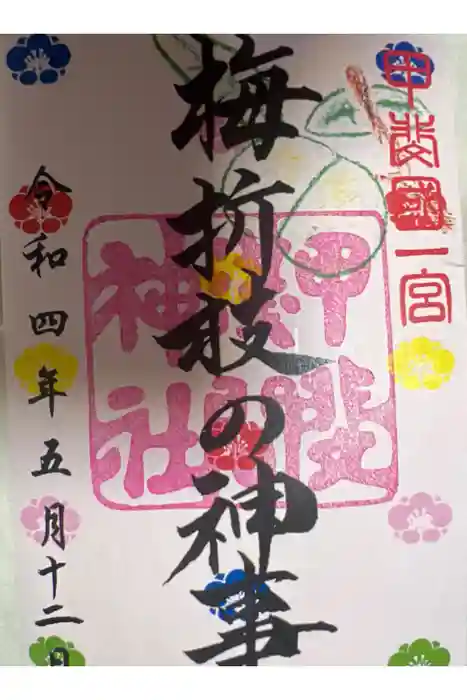 甲斐國一宮
梅折枝の神事
令和四年五月十二日